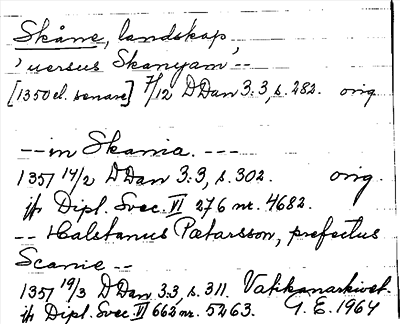 Skåne, landskap
'uersus Skanyam' --
[1350 el. senare] 7/12 DDan 3:3, s. 282. orig
-- in Skania. ---
1351 14/2 DDan 3:3, s. 302. orig.
jfr Dipl. Svec. VI 276 nr. 4682.
-- Halstanus Pætarsson, prefectus
Scanie --
1351 19/3 DDan 3:3, s. 311. Vatikanarkivet.
jfr Dipl. Svec. VI 662 nr. 5263. G. E. 1964